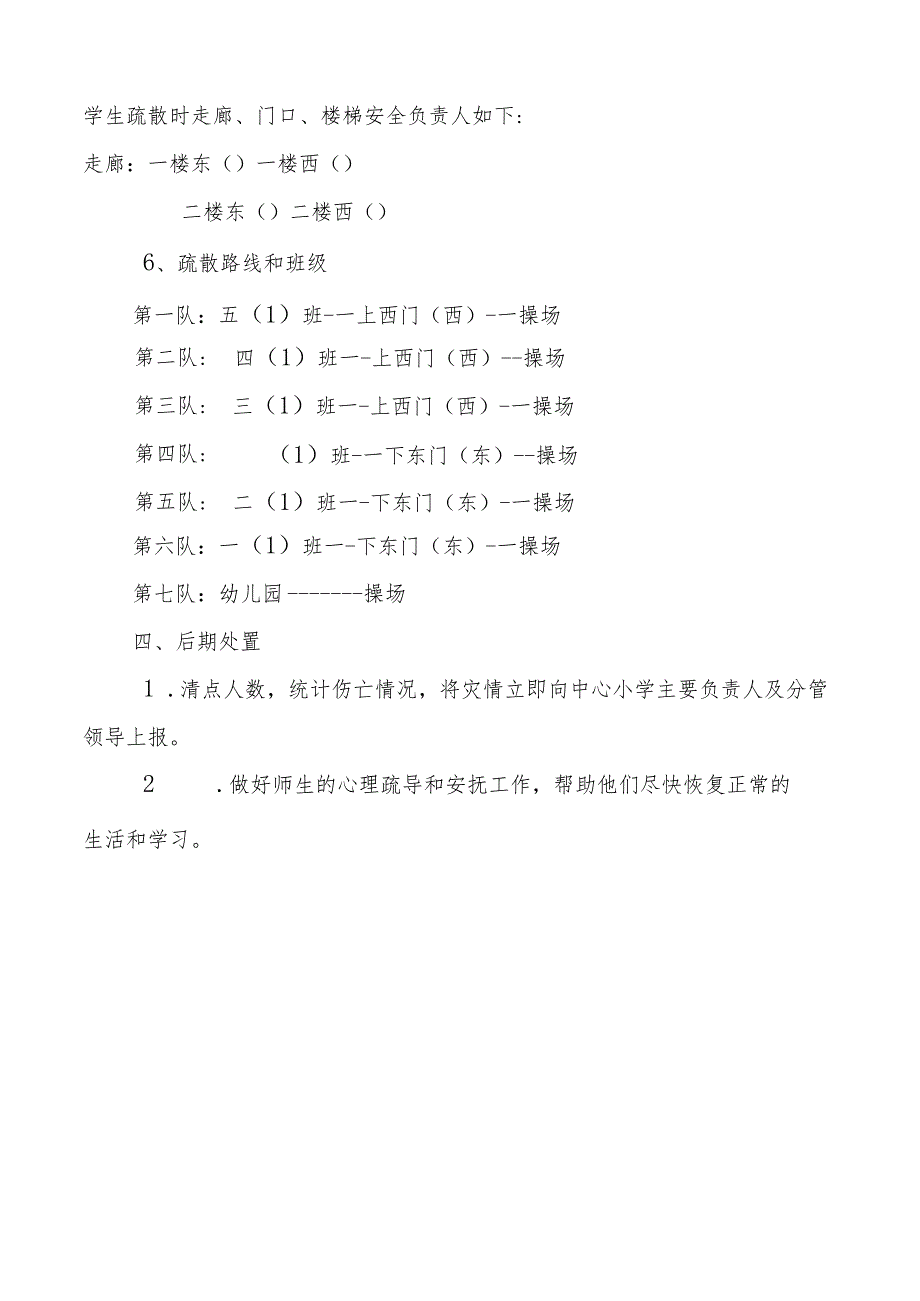 学生疏散时走廊、门口、楼梯安全负责人如下:
走廊: 一楼东（）一楼西（）
二楼东（）二楼西（）
6、疏散路线和班级
第一队: 五（1）班-一上西门（西）-一操场
第二队: 四（1）班一-上西门（西）--操场
第三队: 三（1）班一-上西门（西）-一操场
第四队: （1）班-一下东门（东）--操场
第五队: 二（1）班一-下东门（东）-一操场
第六队: 一（1）班一-下东门（东）-一操场
第七队: 幼儿园-------操场
四、后期处置
1 .清点人数，统计伤亡情况，将灾情立即向中心小学主要负责人及分管
领导上报。
2 .做好师生的心理疏导和安抚工作，帮助他们尽快恢复正常的
生活和学习。